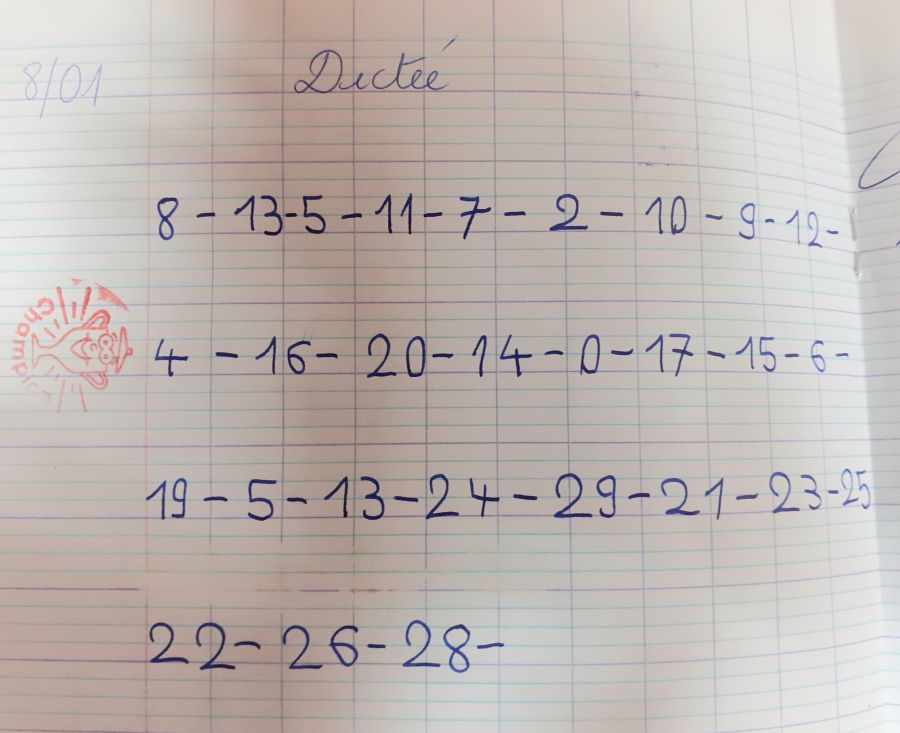 8/01
Dictée
8 - 13-5 - 11 - 7 - 2 - 10 - 9 - 12 -
4 - 16 - 20 - 14 - 0 - 17 - 15 - 6 -
19 - 5 - 13 - 24 - 29 - 21 - 23 - 25
22 - 26 - 28 -